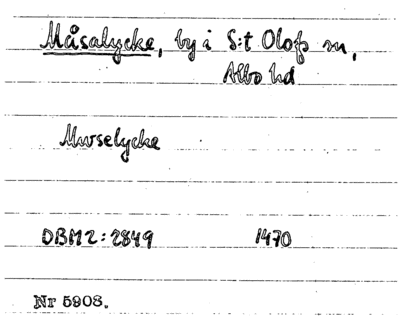 Måsalycke, by i S:t Olofs sn,
Albo hd
Mwselycke
DBM2:2849 1470
Nr 5908.